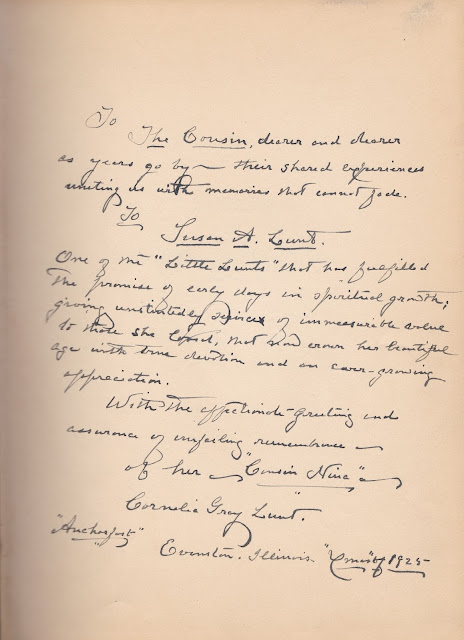 To
The Cousin, dearer and dearer
as years go by – their shared experiences
uniting us with memories that cannot fade.
To
Susan A. Lunt.
One of the "Little Lunts" that has fulfilled
the promise of early days in spiritual growth;
giving unstintedly services of immeasurable value
to those she loved, that now crown her beautiful
age with true devotion and an ever-growing
appreciation.
With the affectionate greeting and
assurance of unfailing remembrance –
of her "Cousin Nina" –
Cornelia Gray Lunt.
"Anchorfast"
Evanston. Illinois. "Xmas" of 1925–